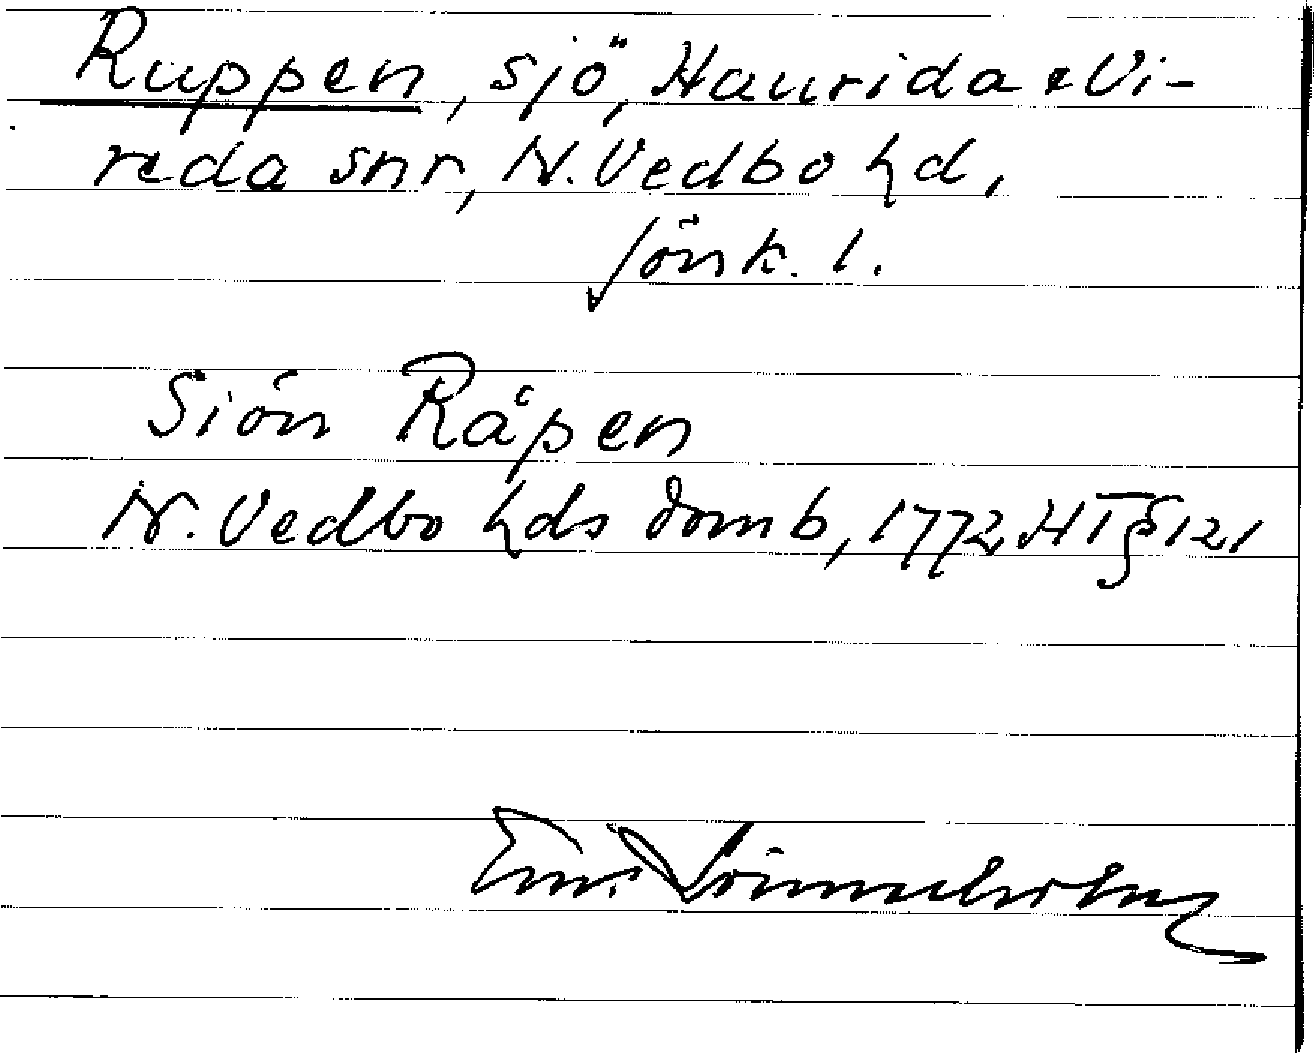 Ruppen, sjö, Haurida & Vi-
reda snr, N. Vedbo hd,
Jönk. l.
Siön Råpen
N. Vedbo hds domb, 1772 HT § 121